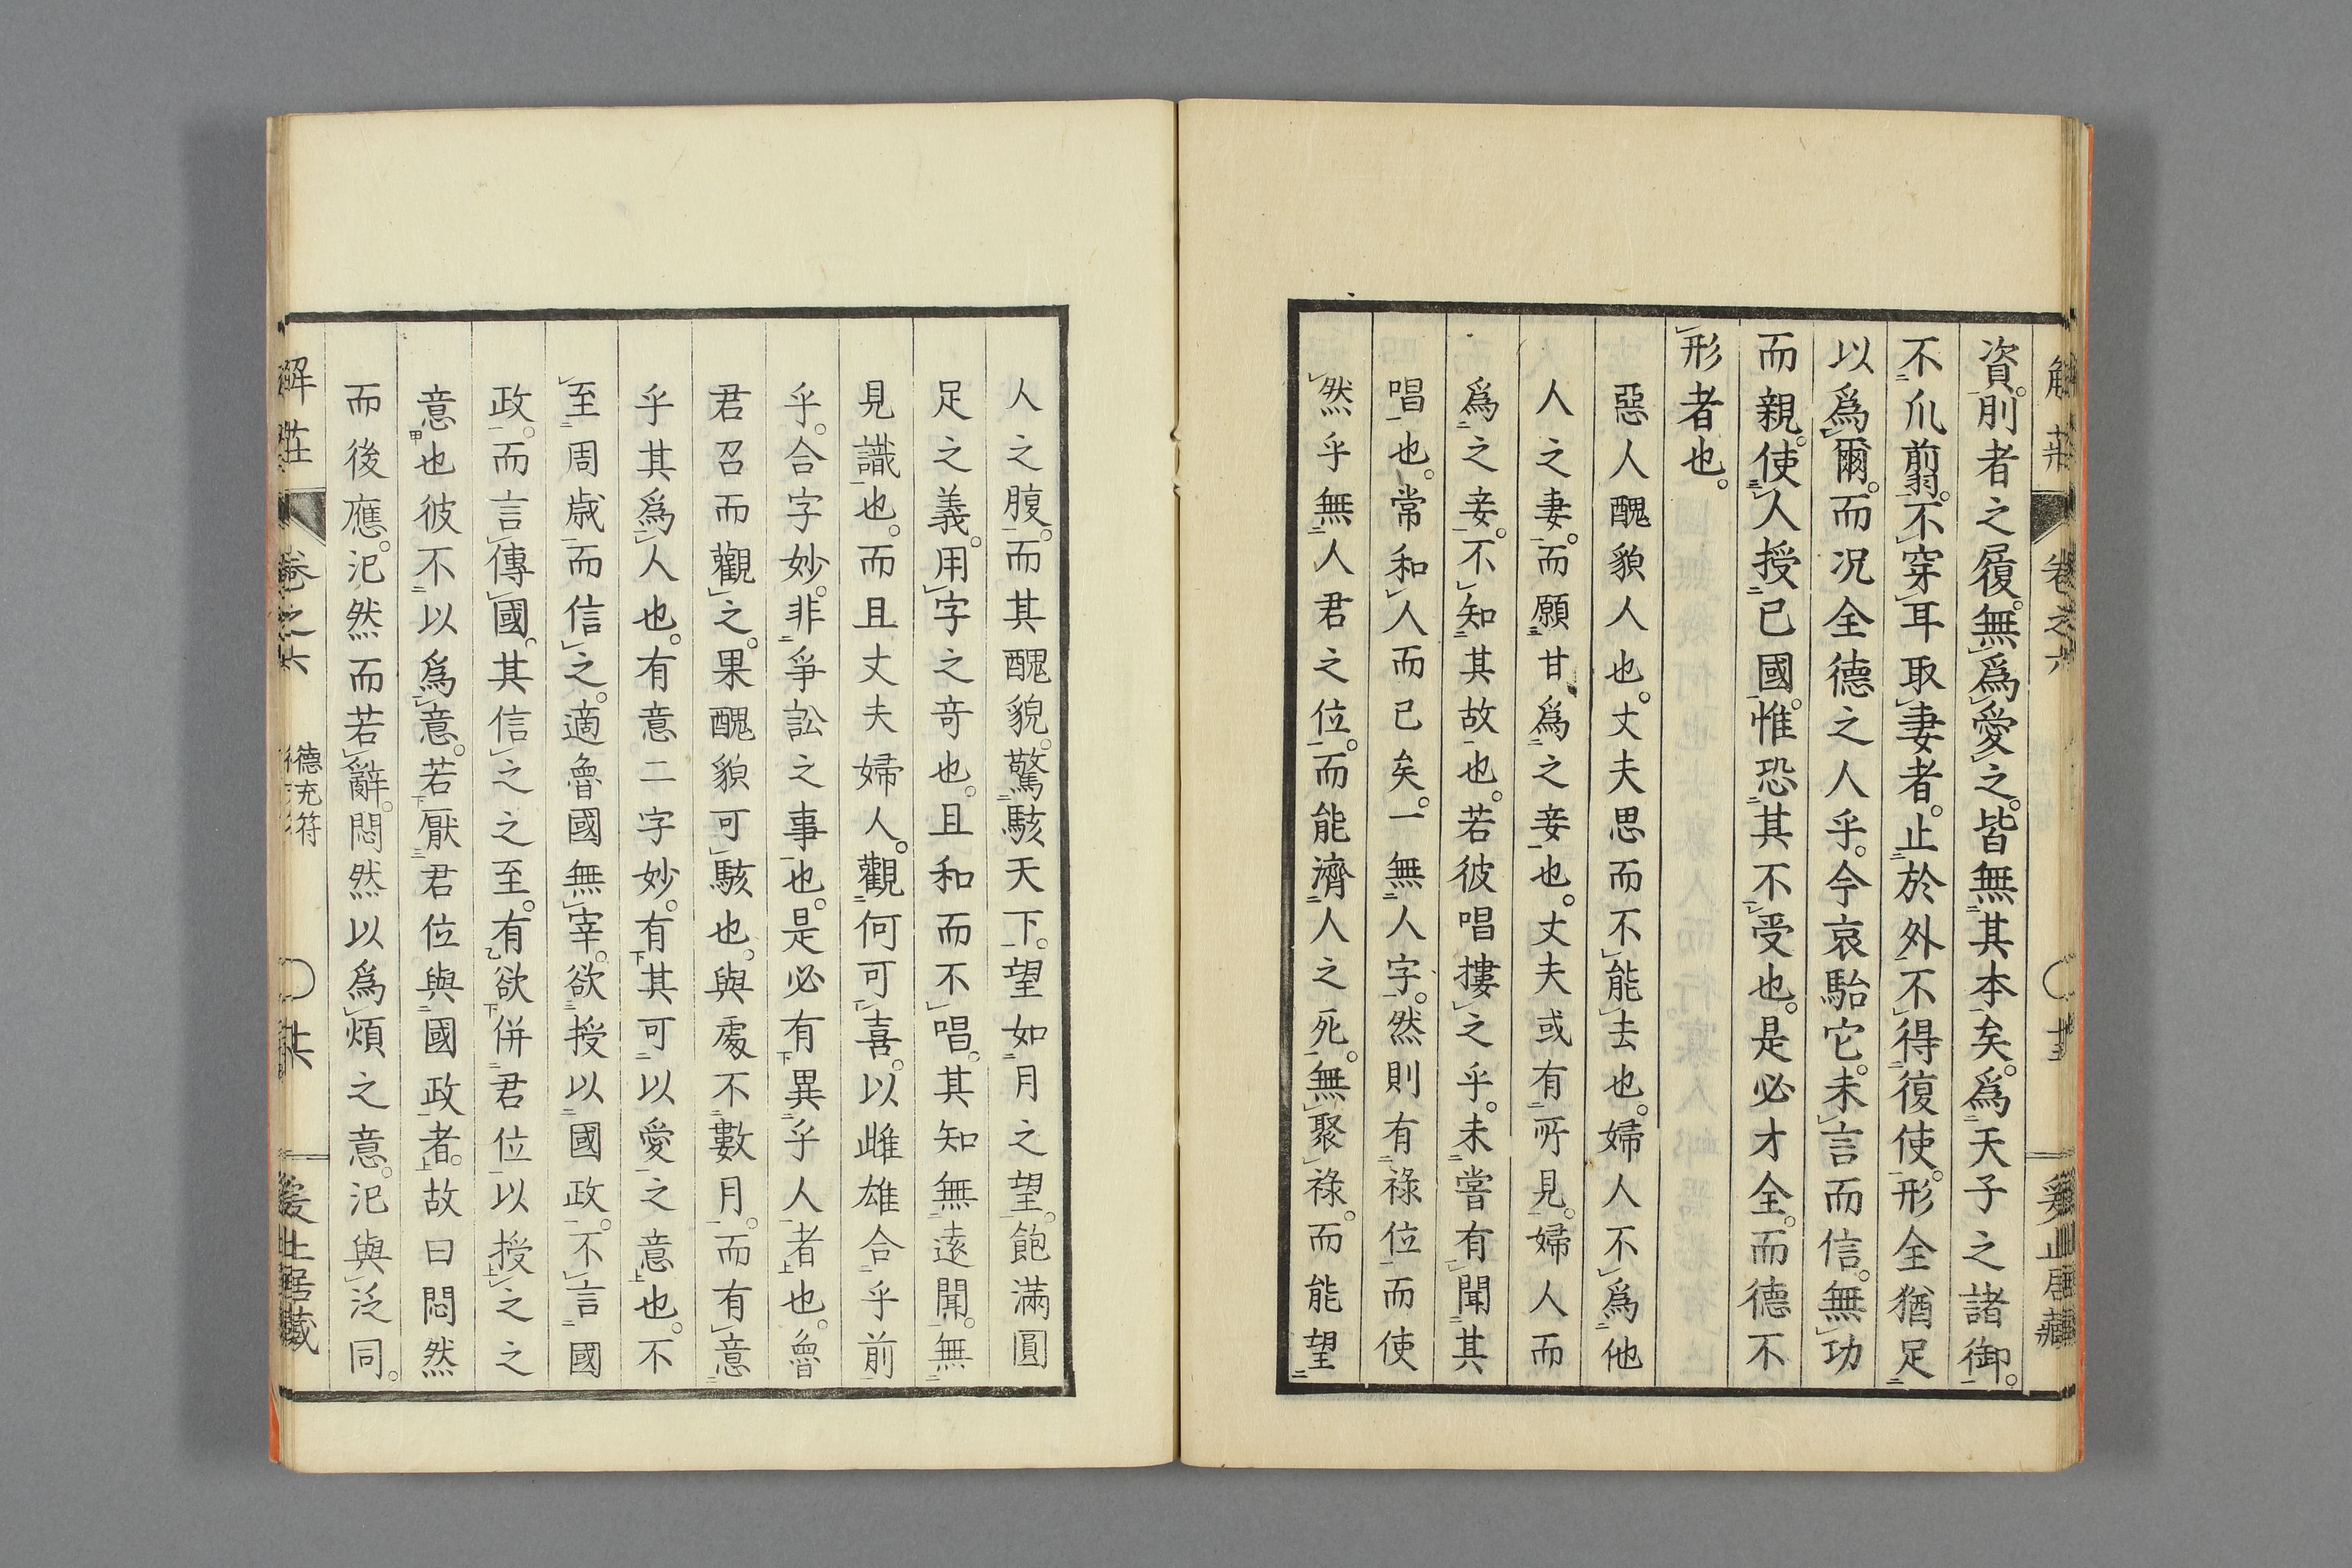 資。刖者之屨。無爲愛之。皆無其本矣。爲天子之諸御。
不爪翦。不穿耳。取妻者。止於外。不得復使。形全猶足
以爲爾。而况全德之人乎。今哀駘它。未言而信。無功
而親。使人授己國。惟恐其不受也。是必才全。而德不
形者也。
惡人醜貌人也。丈夫思而不能去也。婦人不爲他
人之妻。而願甘爲之妾也。丈夫或有所見。婦人而
爲之妾。不知其故也。若彼唱摟之乎。未嘗有聞其
唱也。常和人而已矣。一無人字。然則有祿位而使
然乎無人君之位。而能濟人之死。無聚祿。而能望
人之腹。而其醜貌。驚駭天下。望如月之望。飽滿圓
足之義。用字之奇也。且和而不唱。其知無遠聞。無
見識也。而且丈夫婦人。觀何可喜。以雌雄合乎前
乎。合字妙。非爭訟之事也。是必有異乎人者也。魯
君召而觀之。果醜貌可駭也。與處不數月。而有意
乎其爲人也。有意二字妙。有其可以愛之意也。不
至周歲而信之。適魯國無宰。欲授以國政。不言國
政。而言傳國。其信之之至。有欲併君位以授之之
意也彼不以爲意。若厭君位與國政者。故曰悶然
而後應。氾然而若辭。悶然以爲煩之意。氾與泛同。
解莊 卷之六 德充符 ○ 廿